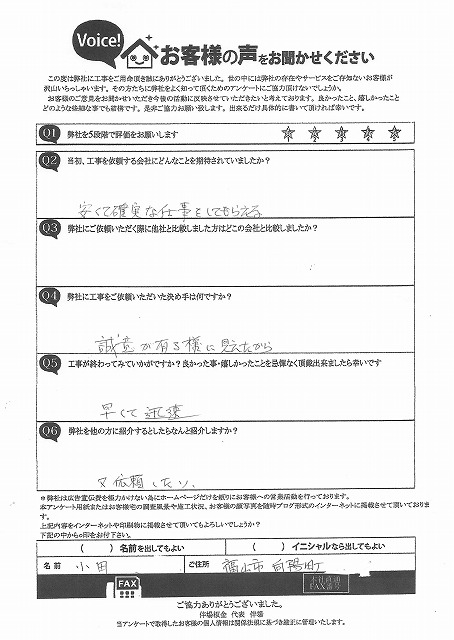 Voice!
お客様の声をお聞かせください
この度は弊社に工事をご用命頂き誠にありがとうございました。世の中には弊社の存在やサービスをご存知ないお客様が
沢山いらっしゃいます。その方たちに弊社をよく知って頂くためのアンケートにご協力頂けないでしょうか。
お客様のご意見をお聞かせいただき今後の活動に反映させていただきたいと考えております。良かったこと、嬉しかったこと
どのような些細な事でも結構です。是非ご協力お願い致します。出来るだけ具体的に書いて頂ければ幸いです。
Q1 弊社を5段階で評価をお願いします
1 2 3 4 5
Q2 当初、工事を依頼する会社にどんなことを期待されていましたか?
安くて確実な仕事をしてもらえる
Q3 弊社にご依頼いただく際に他社と比較しました方はどこの会社と比較しましたか?
Q4 弊社に工事をご依頼いただいた決め手は何ですか?
誠意が有る様に見えたから
Q5 工事が終わってみていかがですか?良かった事・嬉しかったことを忌憚なく頂戴出来ましたら幸いです
早くて迅速
Q6 弊社を他の方に紹介するとしたらなんと紹介しますか?
又依頼したい。
*弊社は広告宣伝費を極力かけない為にホームページだけを頼りにお客様への営業活動を行っております。
本アンケート用紙またはお客様宅の調査風景や施工状況、お客様の顔写真を随時ブログ形式のインターネットに掲載させて頂いております。
上記内容をインターネットや印刷物に掲載させて頂いてもよろしいでしょうか?
下記の中から○印をお付下さい。
( )名前を出してもよい ( )イニシャルなら出してもよい
名前 小田 ご住所 福山市向陽町
FAX 本社直通
FAX番号
ご協力ありがとうございました。
伴場板金 代表 伴場
当アンケートで取得したお客様の個人情報は関係法規に基づき厳正に管理いたします。